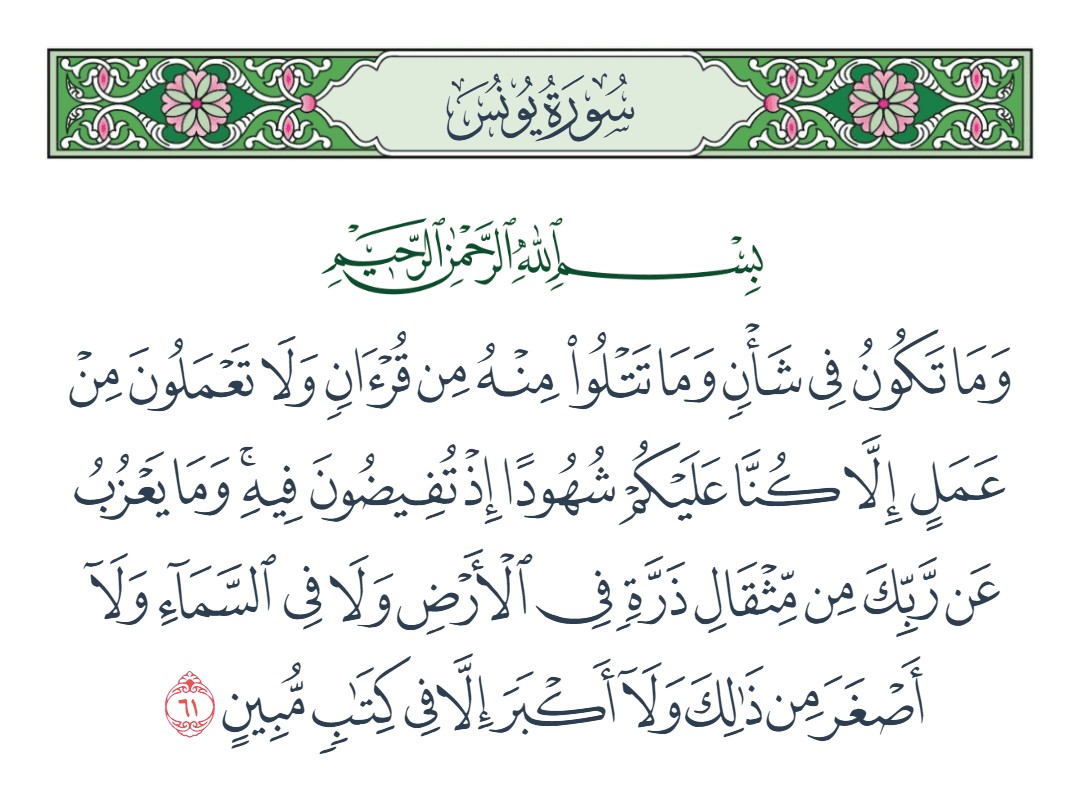 سُورَةُ يُونُسَ
بِسْمِ ٱللَّهِ ٱلرَّحْمَٰنِ ٱلرَّحِيمِ
وَمَا تَكُونُ فِى شَأْنٍ وَمَا تَتْلُوا۟ مِنْهُ مِن قُرْءَانٍ وَلَا تَعْمَلُونَ مِنْ
عَمَلٍ إِلَّا كُنَّا عَلَيْكُمْ شُهُودًا إِذْ تُفِيضُونَ فِيهِ ۚ وَمَا يَعْزُبُ
عَن رَّبِّكَ مِن مِّثْقَالِ ذَرَّةٍ فِى ٱلْأَرْضِ وَلَا فِى ٱلسَّمَآءِ وَلَآ
أَصْغَرَ مِن ذَٰلِكَ وَلَآ أَكْبَرَ إِلَّا فِى كِتَٰبٍ مُّبِينٍ ٦١